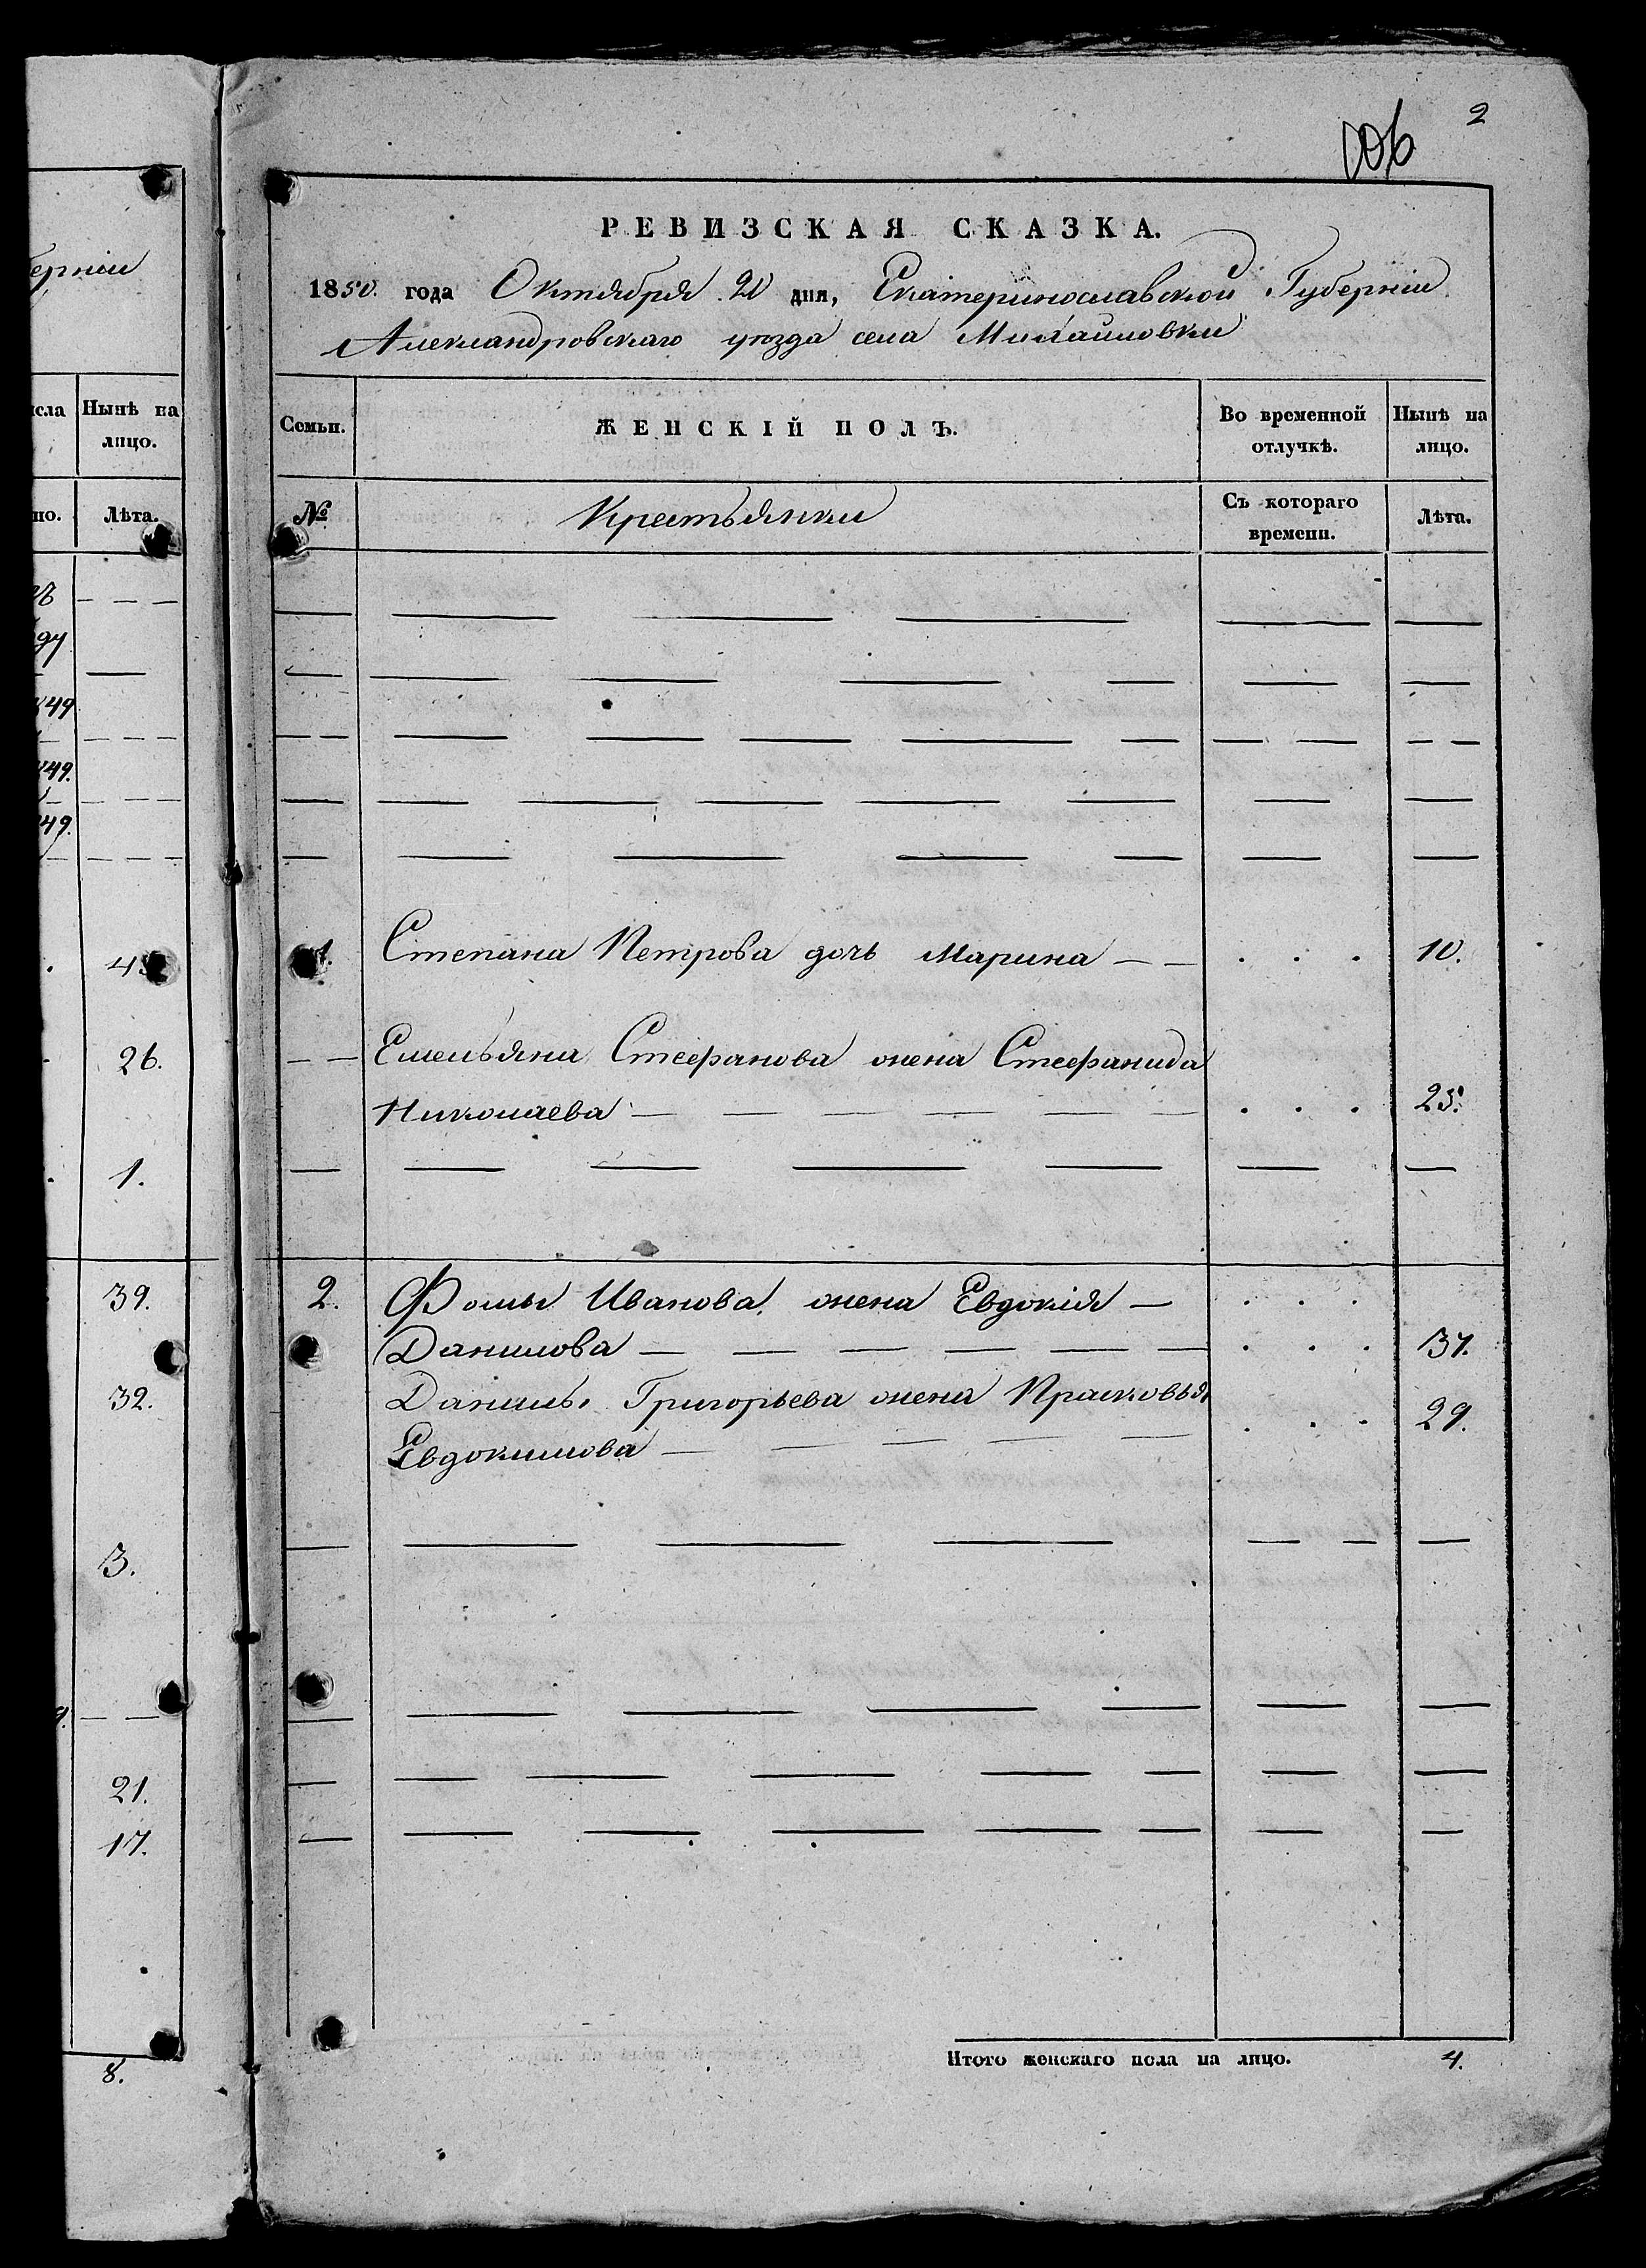 ерніи
сла
Нынѣ на
лицо.
но.
Лѣта.
ду
49
49.
49.
26.
1.
39.
32.
3.
21.
17.
8.
2
006
РЕВИЗСКАЯ СКАЗКА.
1850. года Октября 20 дня, Екатеринославской Губерніи
Александровскаго уѣзда села Михайловки
Семьи.
ЖЕНСКІЙ ПОЛЪ.
Во временной
отлучкѣ.
Нынѣ на
лицо.
№
Крестьянки
Съ котораго
времени.
Лѣта.
1. Степана Петрова дочь Марина — — . . . 10.
— — Емельяна Стефанова жена Стефанида
Николаева — — — — — — . . . 25.
2. Фомы Иванова жена Евдокія — . . .
Данилова — — — — — — . . . 37.
Данилы Григорьева жена Прасковья
Евдокимова — — — — — . . . 29.
Итого женскаго пола на лицо. 4.